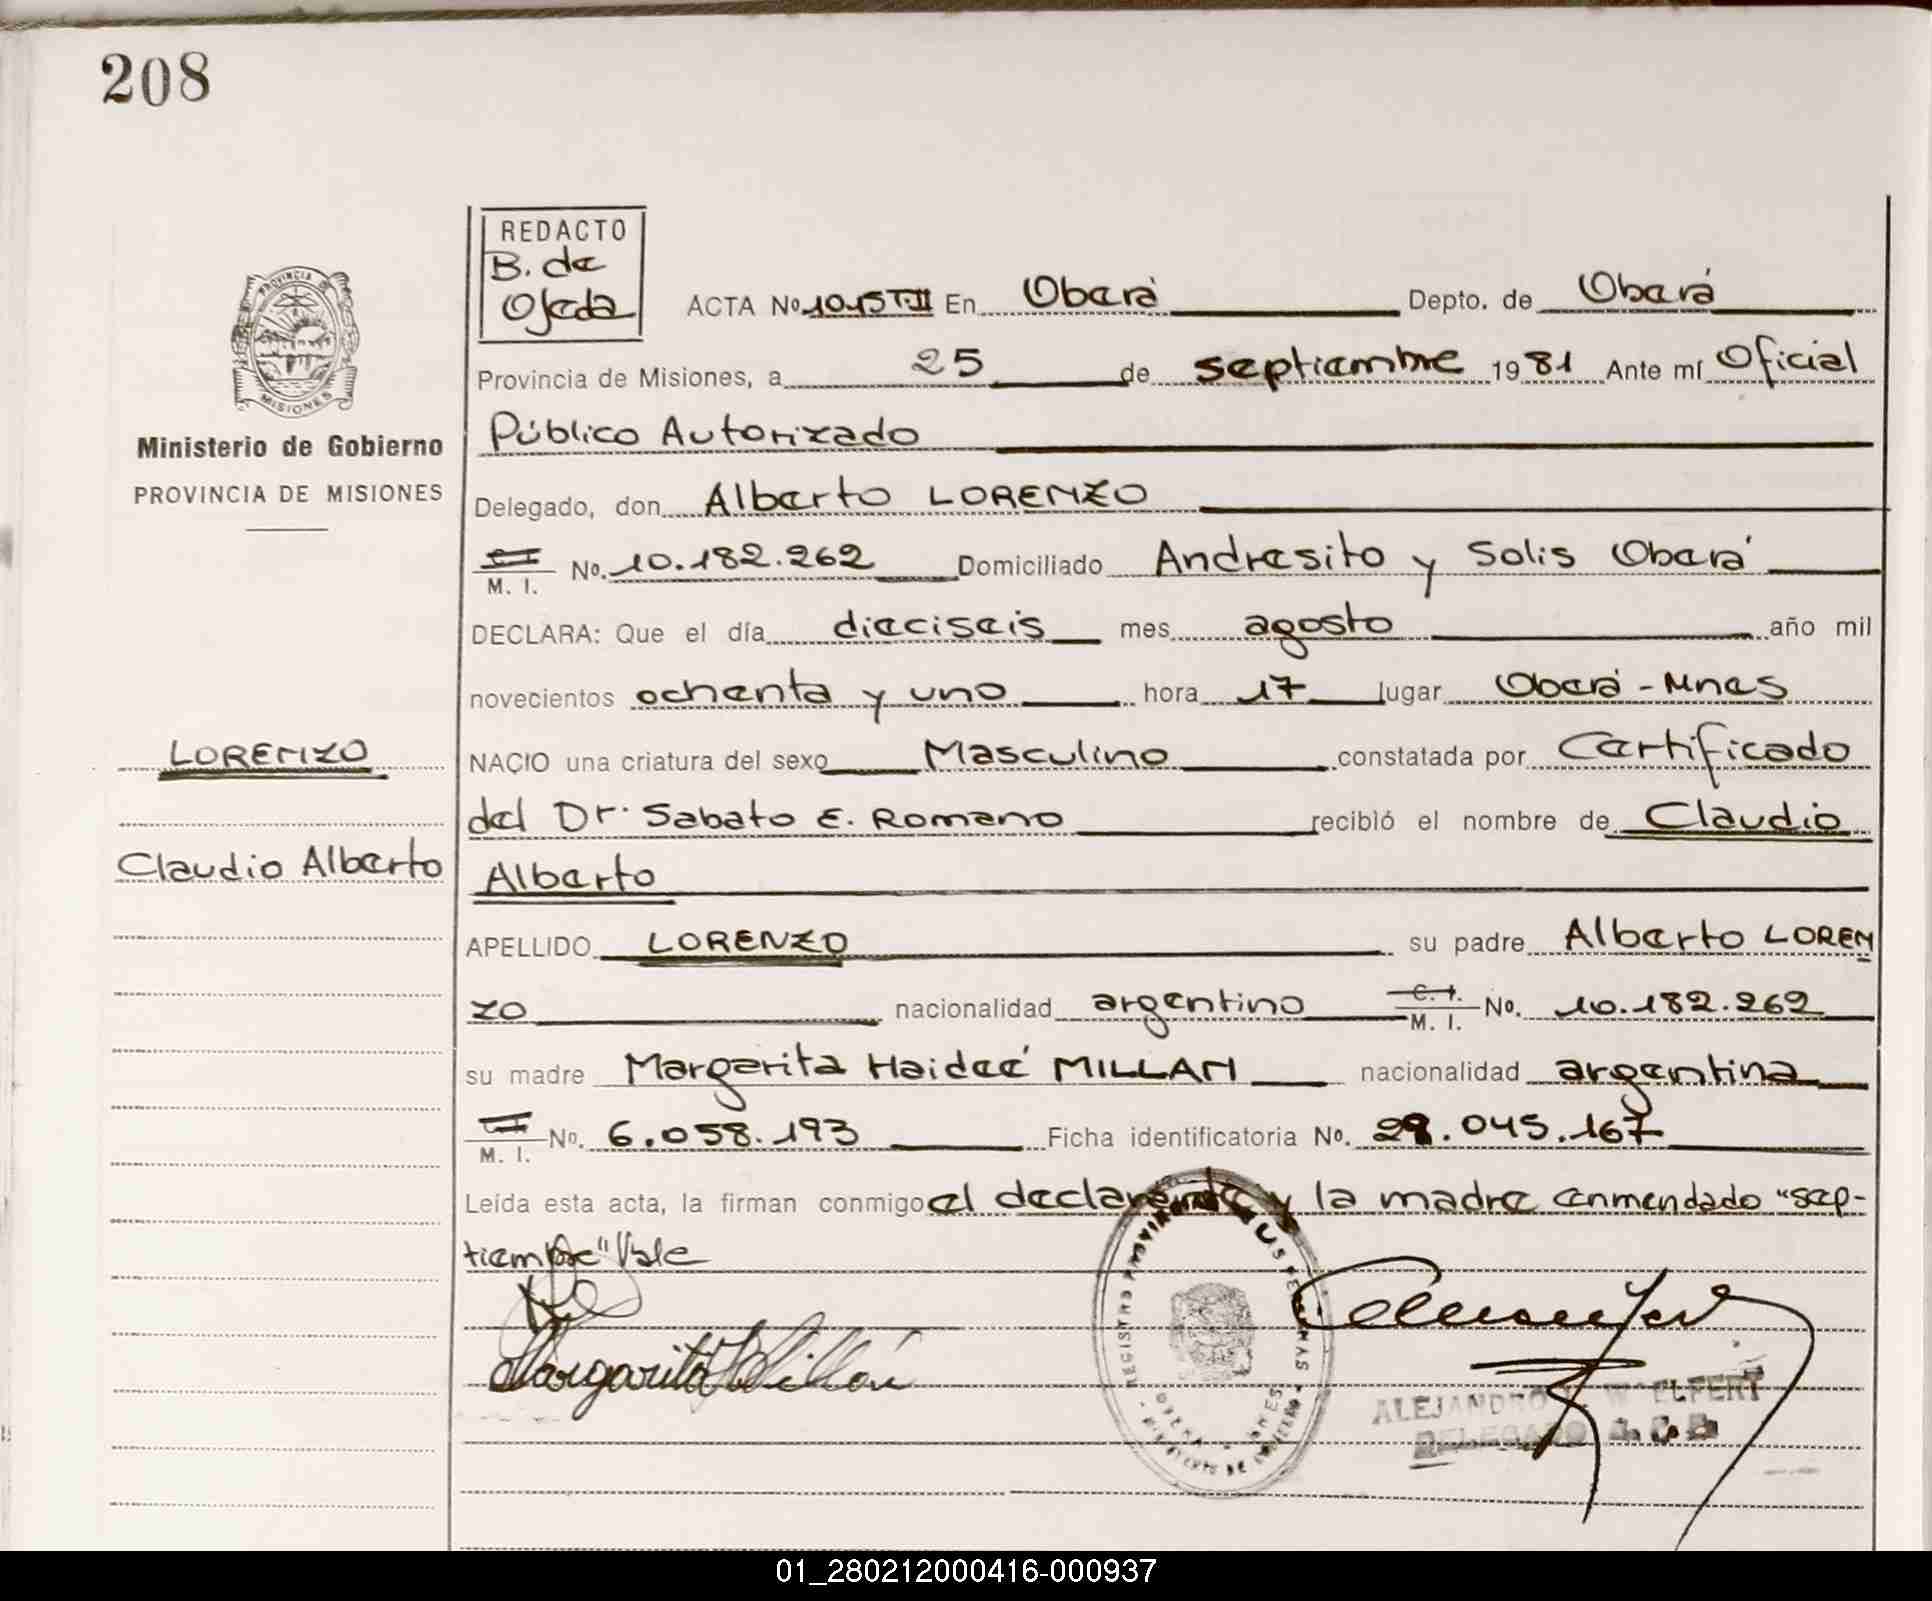 208
REDACTO
B. de
Ojeda
PROVINCIA
MISIONES
ACTA Nº 1015 T.II En Oberá Depto. de Oberá
Provincia de Misiones, a 25 de septiembre 1981 Ante mí Oficial
Ministerio de Gobierno
Público Autorizado
PROVINCIA DE MISIONES
Delegado, don Alberto LORENZO
C I
M. I. No. 10.182.262 Domiciliado Andresito y Solis Oberá
DECLARA: Que el día dieciseis mes agosto año mil
novecientos ochenta y uno hora 17 lugar Oberá - Mnes
LORENZO
NACIO una criatura del sexo Masculino constatada por Certificado
del Dr. Sabato E. Romano recibió el nombre de Claudio
Claudio Alberto
Alberto
APELLIDO LORENZO su padre Alberto LOREN
ZO nacionalidad argentino C. I. M. I. No. 10.182.262
su madre Margarita Haideé MILLAN nacionalidad argentina
M. I. No. 6.058.193 Ficha identificatoria No. 29.045.167
Leída esta acta, la firman conmigo el declarante y la madre enmendado "sep-
tiembre" Vale
Margarita Millán
ALEJANDRO
DELEGADO
01_280212000416-000937